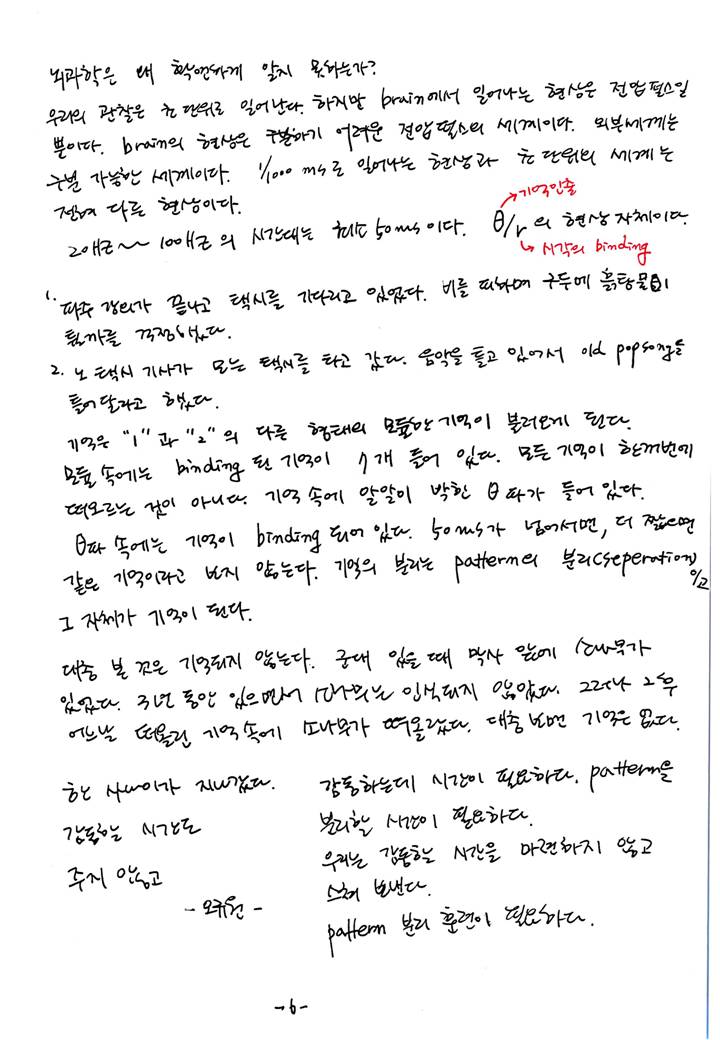 뇌과학은 왜 확연하게 알지 못하는가?
우리의 관찰은 초 단위로 일어난다. 하지만 brain에서 일어나는 현상은 전압펄스일
뿐이다. brain의 현상은 구분하기 어려운 전압펄스의 세계이다. 외부세계는
구분 가능한 세계이다. 1/1000 ms로 일어나는 현상과 초 단위의 세계는
전혀 다른 현상이다.
→기억인출
20헤르츠~100헤르츠의 시간대는 최소 50ms이다. θ/r의 현상 자체이다.
↳시각의 binding
1. 파주 강의가 끝나고 택시를 기다리고 있었다. 비를 피하며 구두에 흙탕물이
튈까를 걱정했었다.
2. 노 택시 기사가 모는 택시를 타고 갔다. 음악을 틀고 있어서 old popsong을
틀어달라고 했다.
기억은 "1"과 "2"의 다른 형태의 모듈한 기억이 불려오게 된다.
모듈 속에는 binding 된 기억이 7개 들어 있다. 모든 기억이 한꺼번에
떠오르는 것이 아니다. 기억 속에 알알이 박힌 θ파가 들어있다.
θ파 속에는 기억이 binding 되어 있다. 50ms가 넘어서면, 더 짧으면
같은 기억이라고 보지 않는다. 기억의 분리는 pattern의 분리(seperation)이고
그 자체가 기억이 된다.
대충 본 것은 기억되지 않는다. 군대 있을 때 막사 앞에 소나무가
있었다. 3년 동안 있으면서 소나무는 인식되지 않았다. 그러나 그 후
어느날 떠올린 기억속에 소나무가 떠올랐다. 대충 보면 기억은 없다.
한 사나이가 지나갔다.
감동할 시간도
주지 않고
- 오규원 -
감동하는데 시간이 필요하다. pattern을
분리할 시간이 필요하다.
우리는 감동할 시간을 마련하지 않고
스쳐 보낸다.
pattern 분리 훈련이 필요하다.
-6-